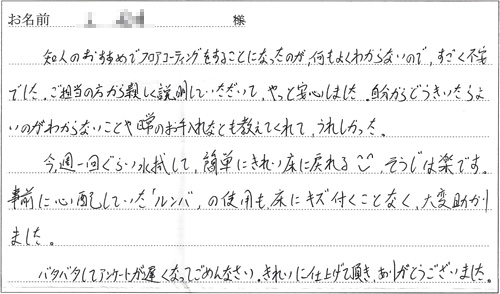 お名前 様
知人のおすすめでフロアコーティングをすることになったのが、何もよくわからないので、すごく不安
でした。ご担当の方から親しく説明していただいて、やっと安心しました。自分からどうきいたらよ
いのがわからないことや日常のお手入れなども教えてくれて、うれしかった。
今、週一回ぐらい水拭して、簡単にきれい床に戻れる そうじは楽です。
事前に心配していた「ルンバ」の使用も、床にキズ付くことなく、大変助かり
ました。
バタバタしてアンケートが遅くなってごめんなさい。きれいに仕上げて頂き、ありがとうございました。